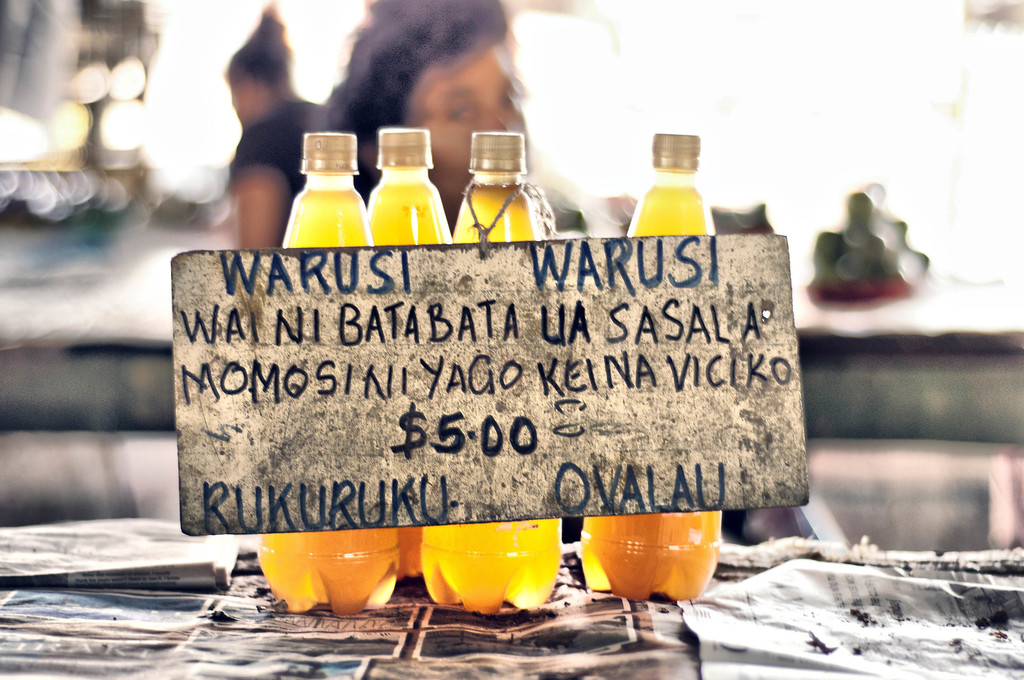 WARUSI WARUSI
WAI NI BATABATA UA SASALA
MOMOSI NI YAGO KEI NA VICIKO
$5.00
RUKURUKU. OVALAU